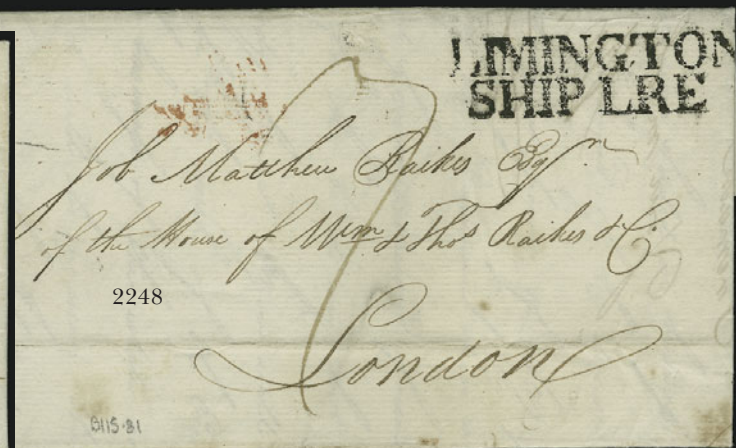 LIMINGTON
SHIP LRE
7
Job Matthew Raikes Esqr
of the House of Wm & Thos Raikes & Co.
2248
London
B115.81